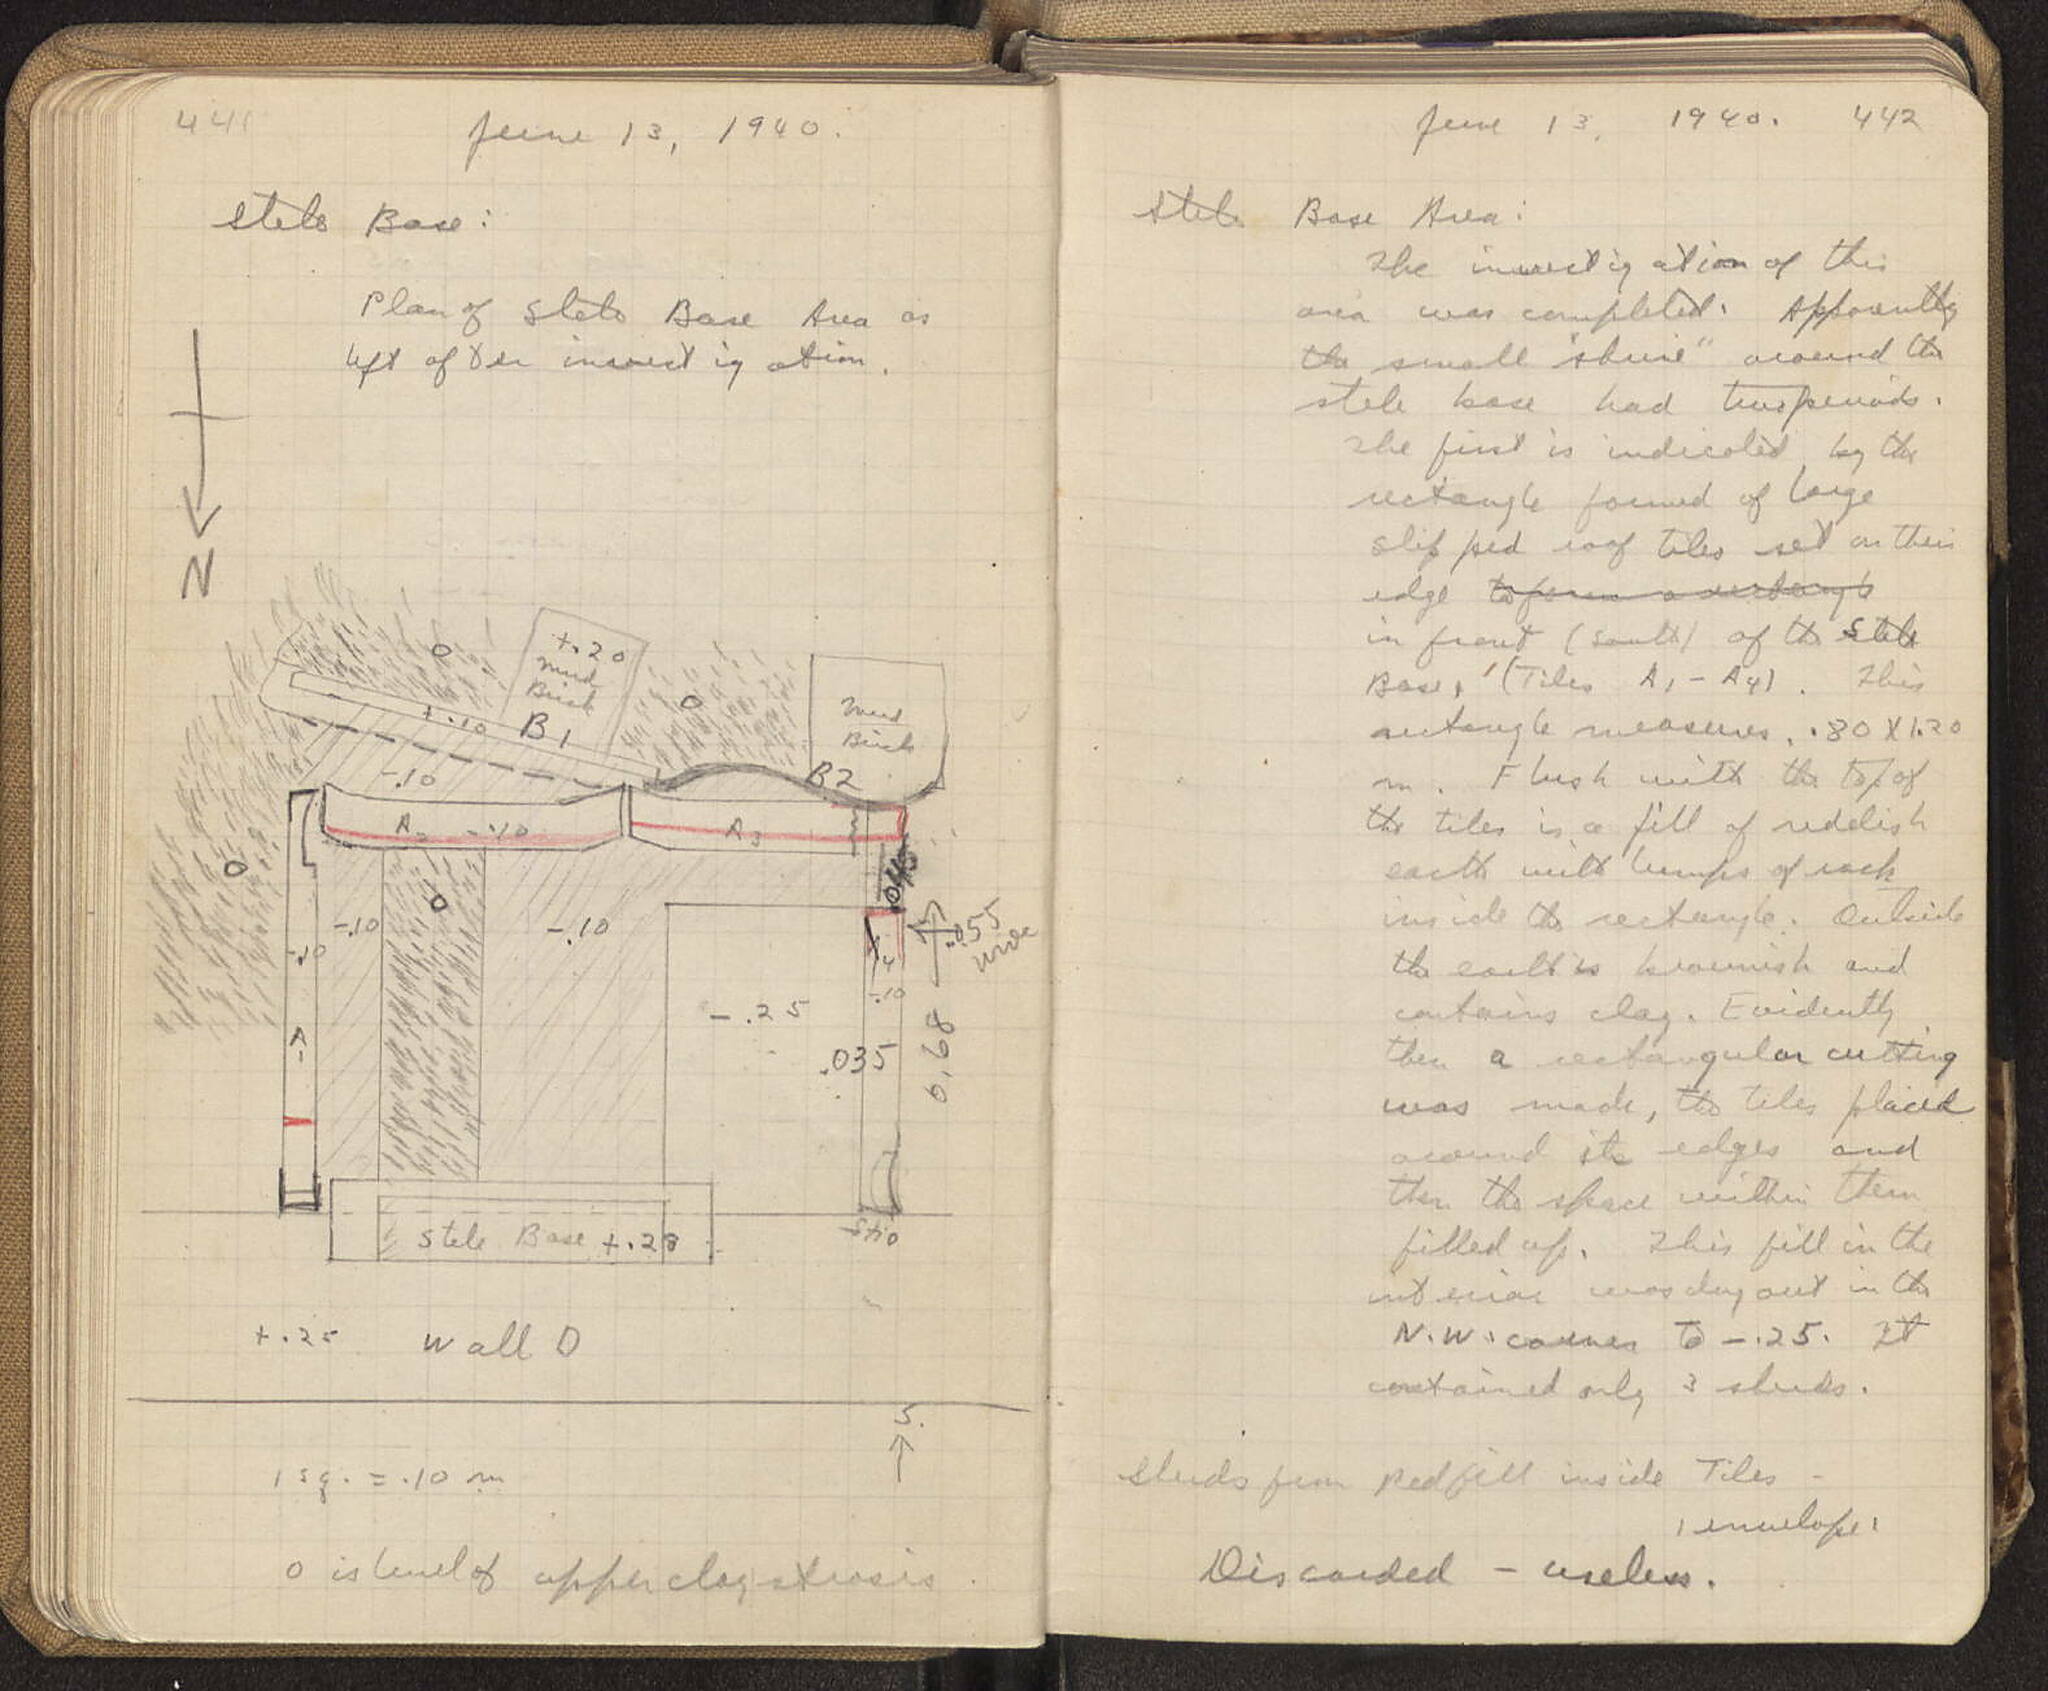 441
June 13, 1940.
Stele Base:
Plan of Stele Base Area as
left after investigation.
N
+.20
Mud
Brick
Mud
Brick
+.10 B1
B2
-.10
A2 -.10
A3
-.10
-.10
-.10
A1
-.25
A4
-.10
.055
wide
.035
0.68
Stele Base +.28
+.25 Wall D
S.
1 sq. = .10 m
O is level of upper clay strosis.
June 13, 1940. 442
Stele Base Area:
The investigation of this
area was completed. Apparently
the small "shrine" around the
stele base had two periods.
The first is indicated by the
rectangle formed of large
slipped roof tiles set on their
edge to form a rectangle
in front (south) of the Stele
Base, (Tiles A1 - A4). This
rectangle measures .80 X 1.20
m. Flush with the top of
the tiles is a fill of reddish
earth with lumps of rock
inside the rectangle. Outside
the earth is brownish and
contains clay. Evidently
then a rectangular cutting
was made, the tiles placed
around its edges and
then the space within them
filled up. This fill in the
interior was dug out in the
N.W. corner to -.25. It
contained only 3 sherds.
Sherds from Red fill inside Tiles -
1 envelope.
Discarded - useless.